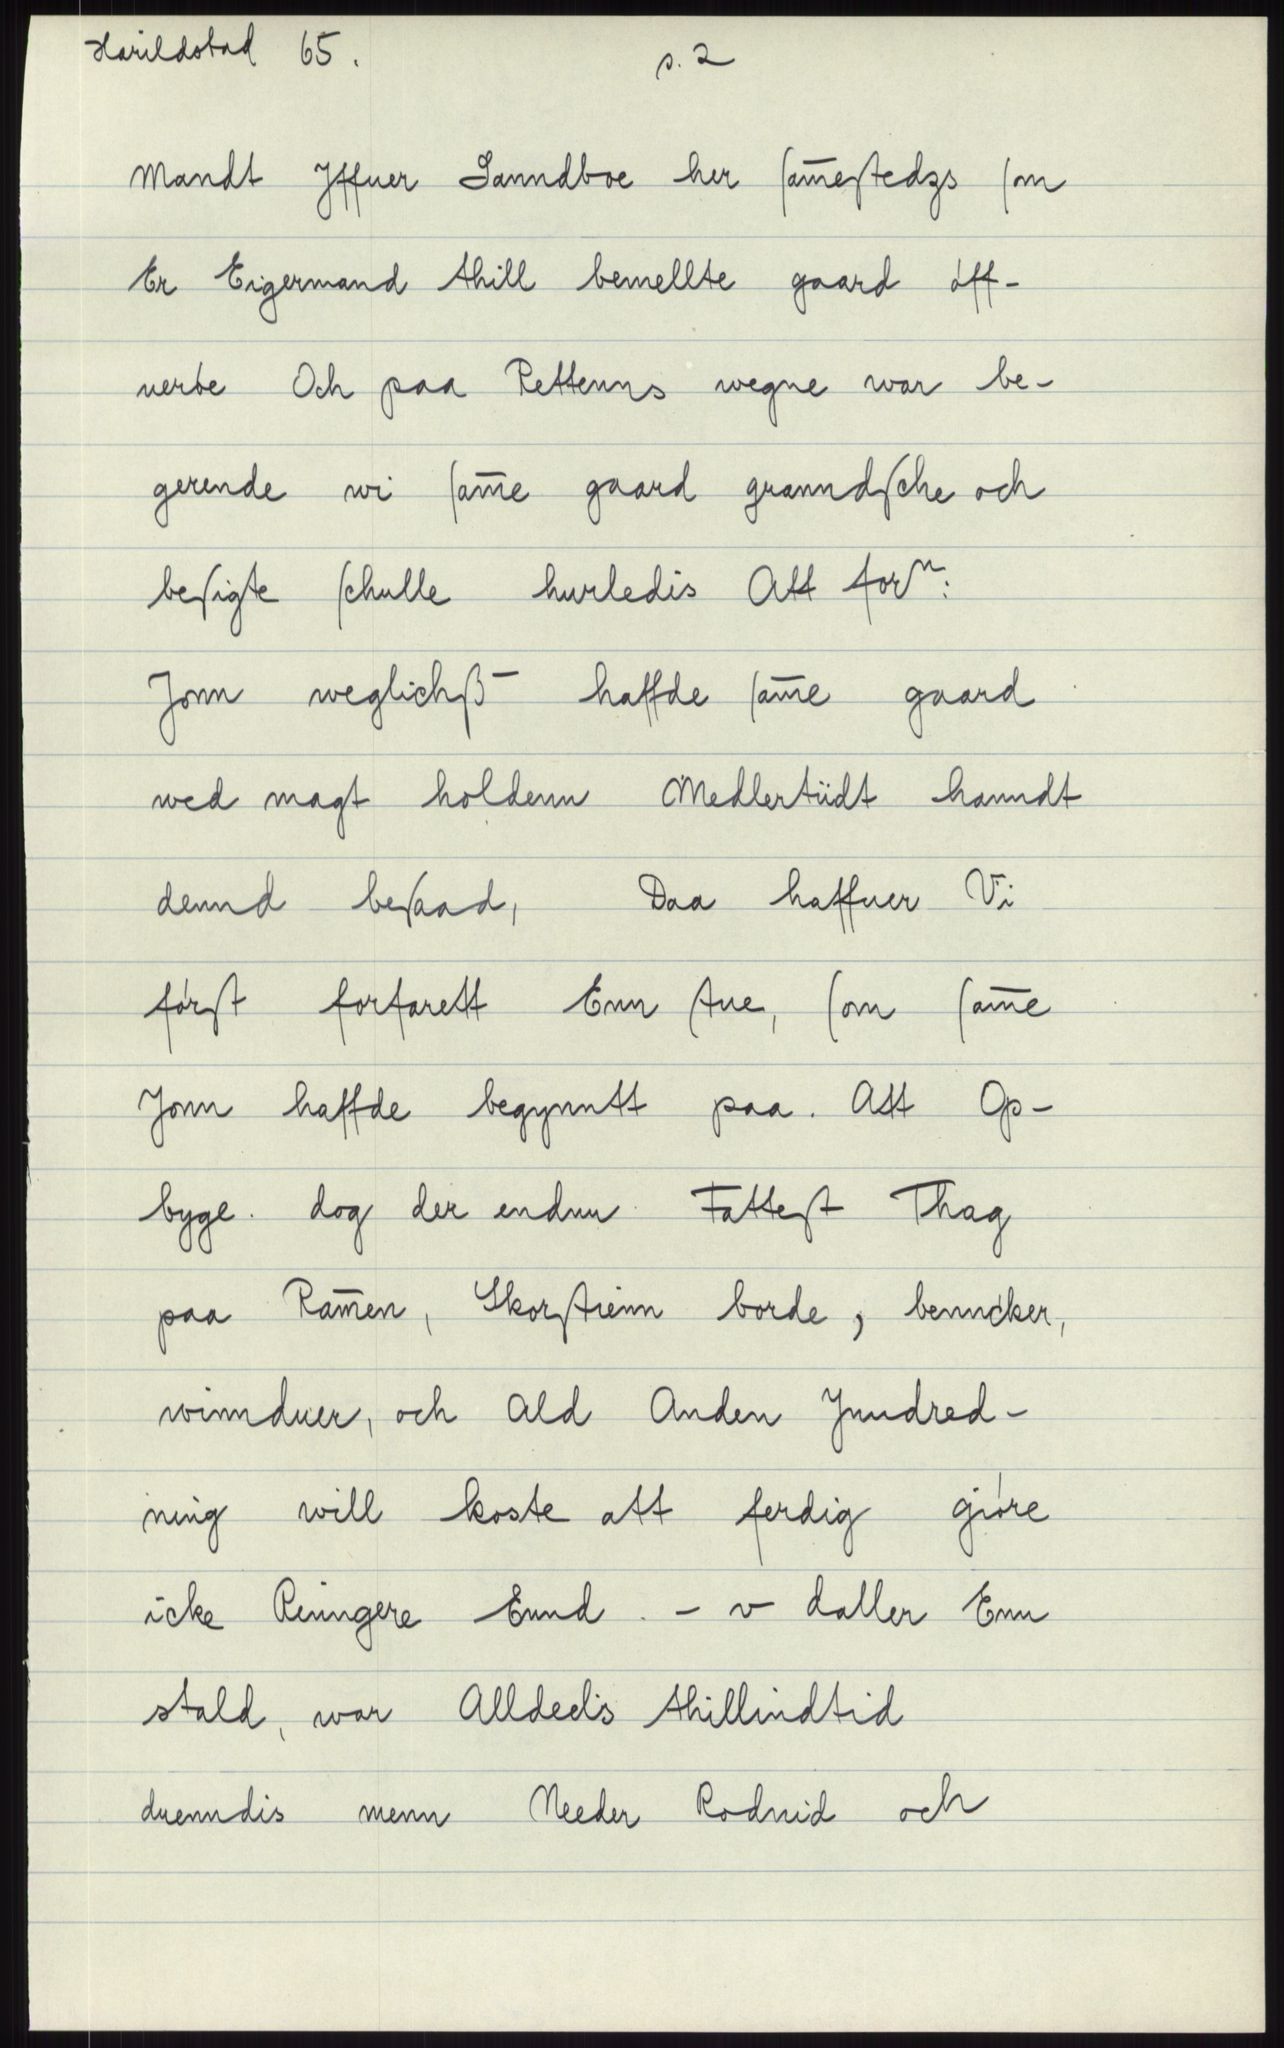 Harildstad 65. s. 2
Mandt Jffuer Sanndboe her sam̅estedzs som
Er Eigermand thill bemellte gaard óff-
uerbe Och paa Rettenns wegne war be-
gerende wi sam̅e gaard granndsche och
besigte schulle hurledis Att forn:
Jonn weglichß haffde sam̅e gaard
wed magt holdenn Medlertüdt hanndt
dennd besaad, Daa haffuer Vi
först forfarett Enn stue, som sam̅e
Jonn haffde begynntt paa. Att Op-
byge. dog der endnu Fattest Thag
paa Ram̅en, Skorstienn borde, benncker,
winnduer, och Ald Anden Jnndred-
ning will koste att ferdig gióre
icke Reinngere Ennd. - v daller Enn
stald, war Alldeelis thillindtid
duenndis menn Needer Rodnid och